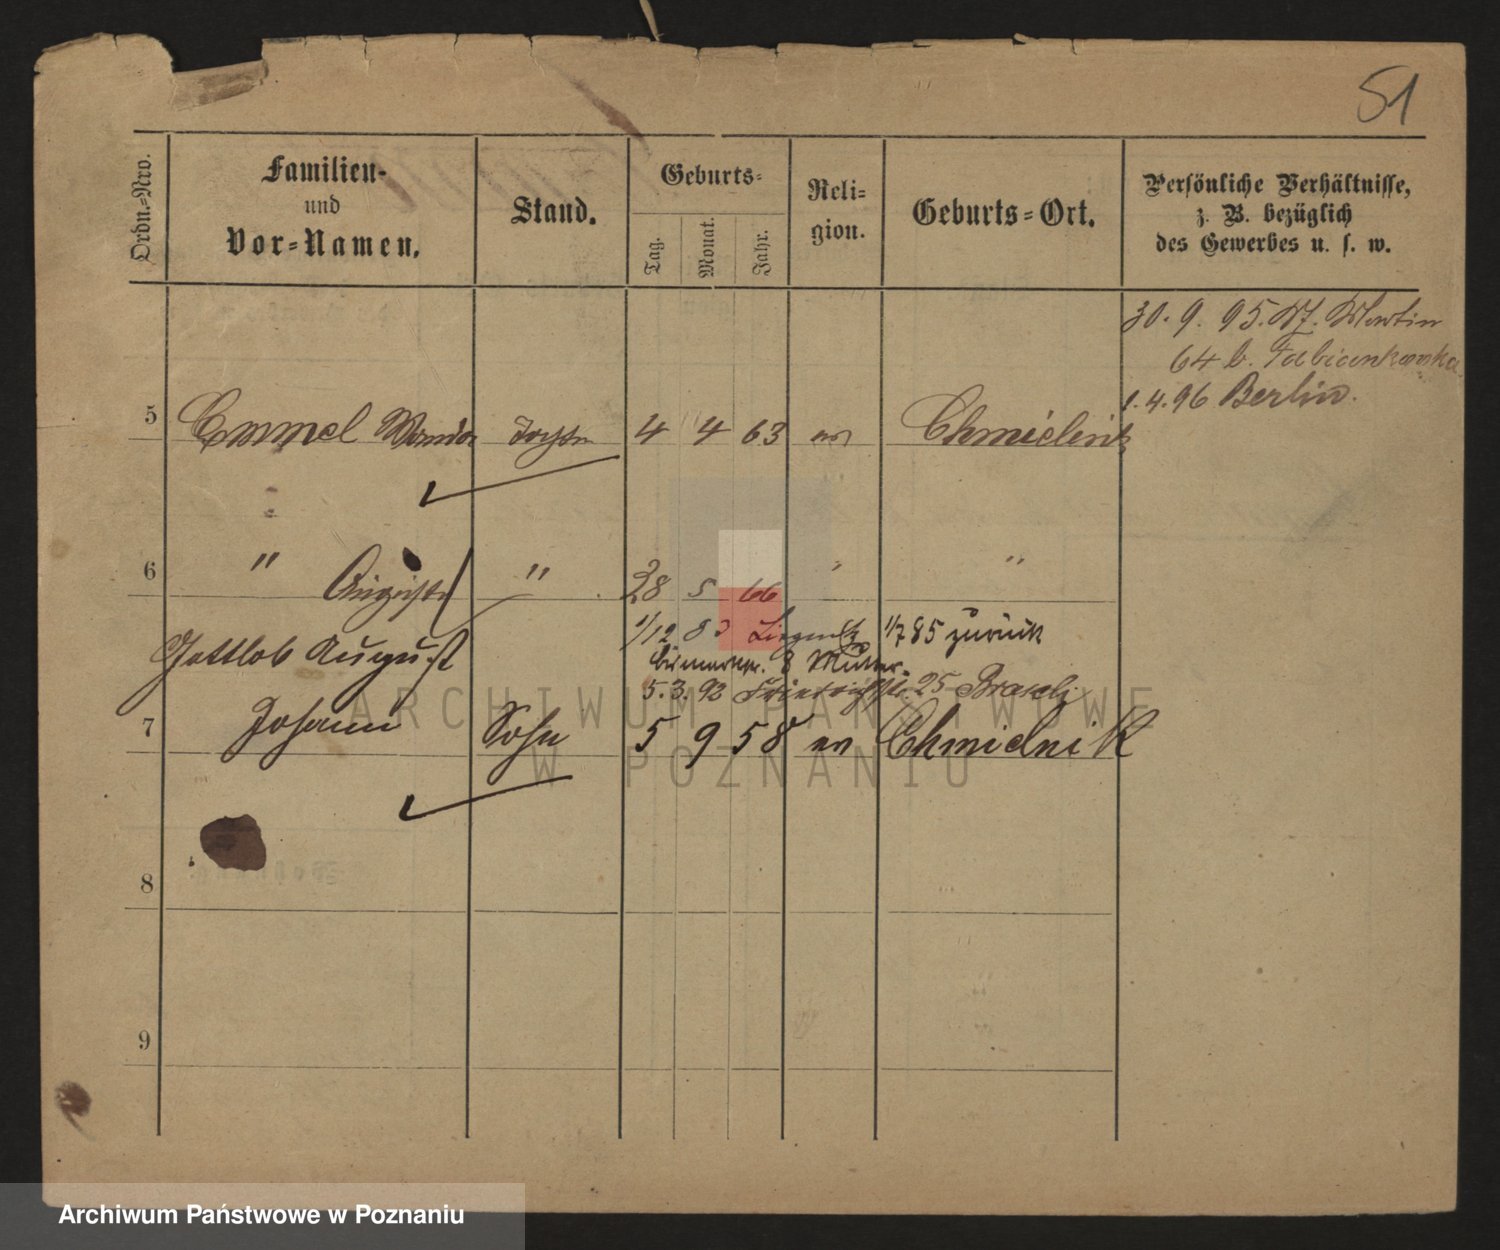 51
Ordn.-Nro.
Familien-
und
Vor-Namen.
Stand.
Geburts-
Tag.
Monat.
Jahr.
Reli-
gion.
Geburts-Ort.
Persönliche Verhältnisse,
z. B. bezüglich
des Gewerbes u. s. w.
30. 9. 95. Martin
64 b. Fabiankowska
1. 4. 96 Berlin.
5 Emmel Wanda 4 4 63 ev Chmielnik
6 " Auguste " 28 5 66 " "
1/12 83 Liegnitz 1/7 85 zurück
Gottlob August
8 Mutter.
5. 3. 92 Friedrichstr. 25
7 Johann Sohn 5 9 58 ev Chmielnik
8
9
ARCHIWUM PAŃSTWOWE
W POZNANIU
Archiwum Państwowe w Poznaniu